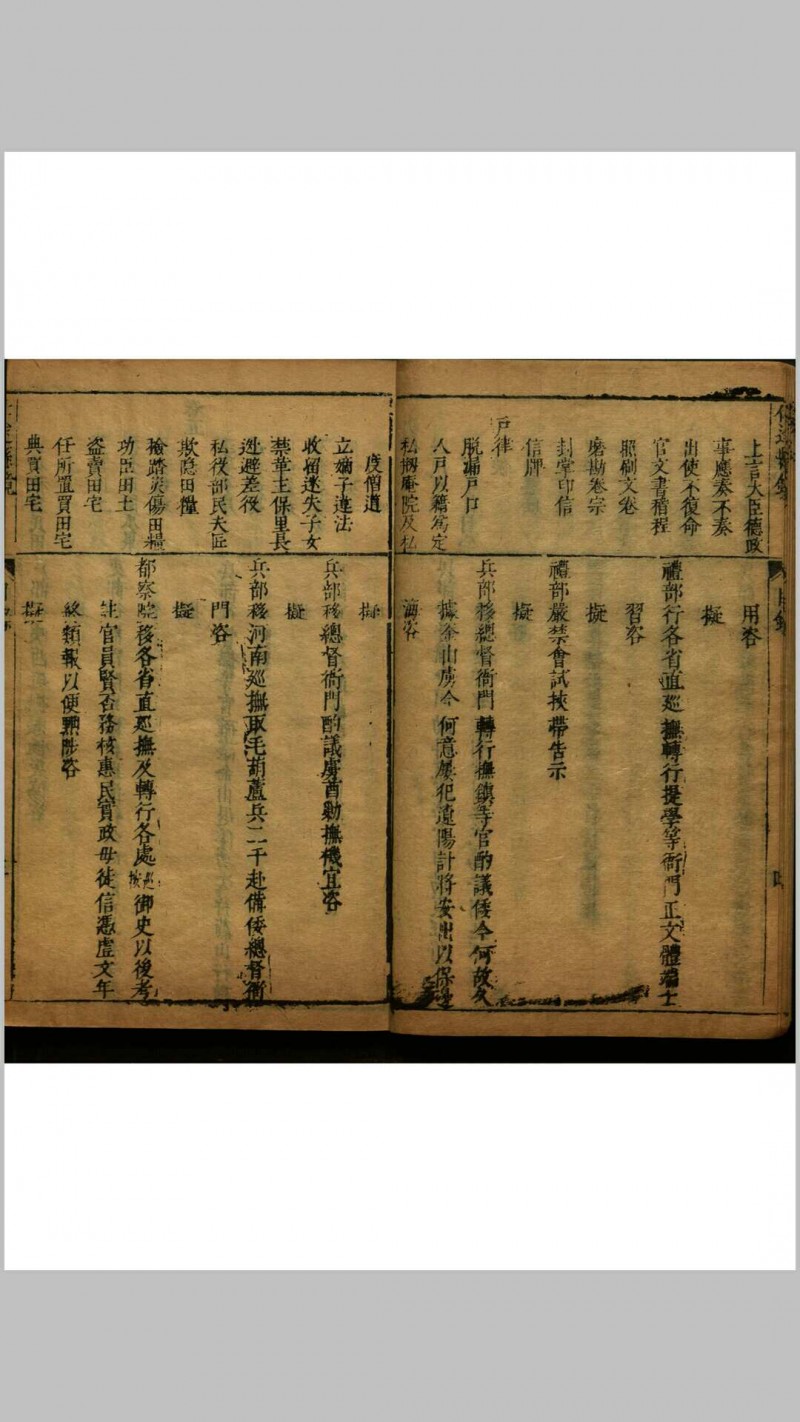 上言大臣德政
事應奏不奏
出使不復命
官文書稽程
照刷文卷
磨勘卷宗
封掌印信
信牌
戶律
脫漏戶口
人戶以籍爲定
私剏庵院及私
用咨
擬
禮部行各省直巡撫轉行提學等衙門正文體端士
習咨
擬
禮部嚴禁會試挾帶告示
擬
兵部移總督衙門轉行撫鎮等官酌議倭今何故久
據釜山虜今何意屢犯遼陽計將安出以保
海咨
度僧道
立嫡子違法
收留迷失子女
禁革主保里長
逃避差役
私役部民夫匠
欺隱田糧
檢踏災傷田糧
功臣田土
盜賣田宅
任所置買田宅
典買田宅
擬
兵部移總督衙門酌議虜酋勦撫機宜咨
擬
兵部移河南巡撫取毛葫蘆兵二千赴備倭總督衙
門咨
擬
都察院移各省直巡撫及轉行各處巡按御史以後考
註官員賢否務核惠民實政毋徒信憑虛文年
終類報以便黜陟咨
擬